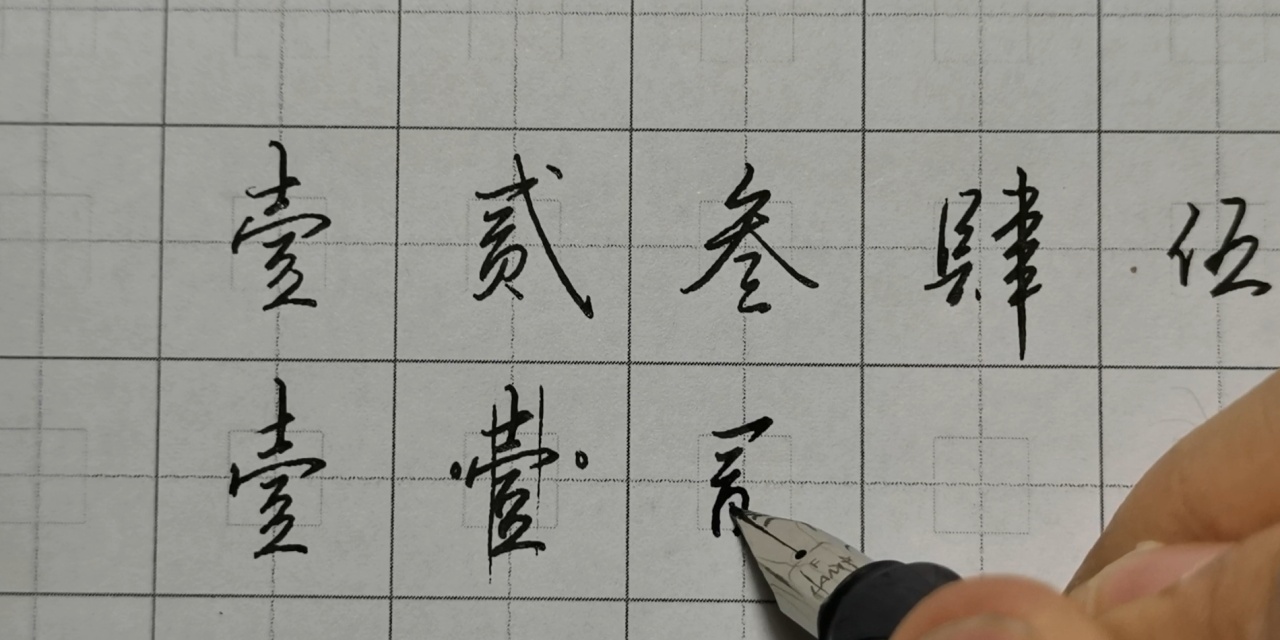 壹 贰 叁 肆 伍
壹 壹
F